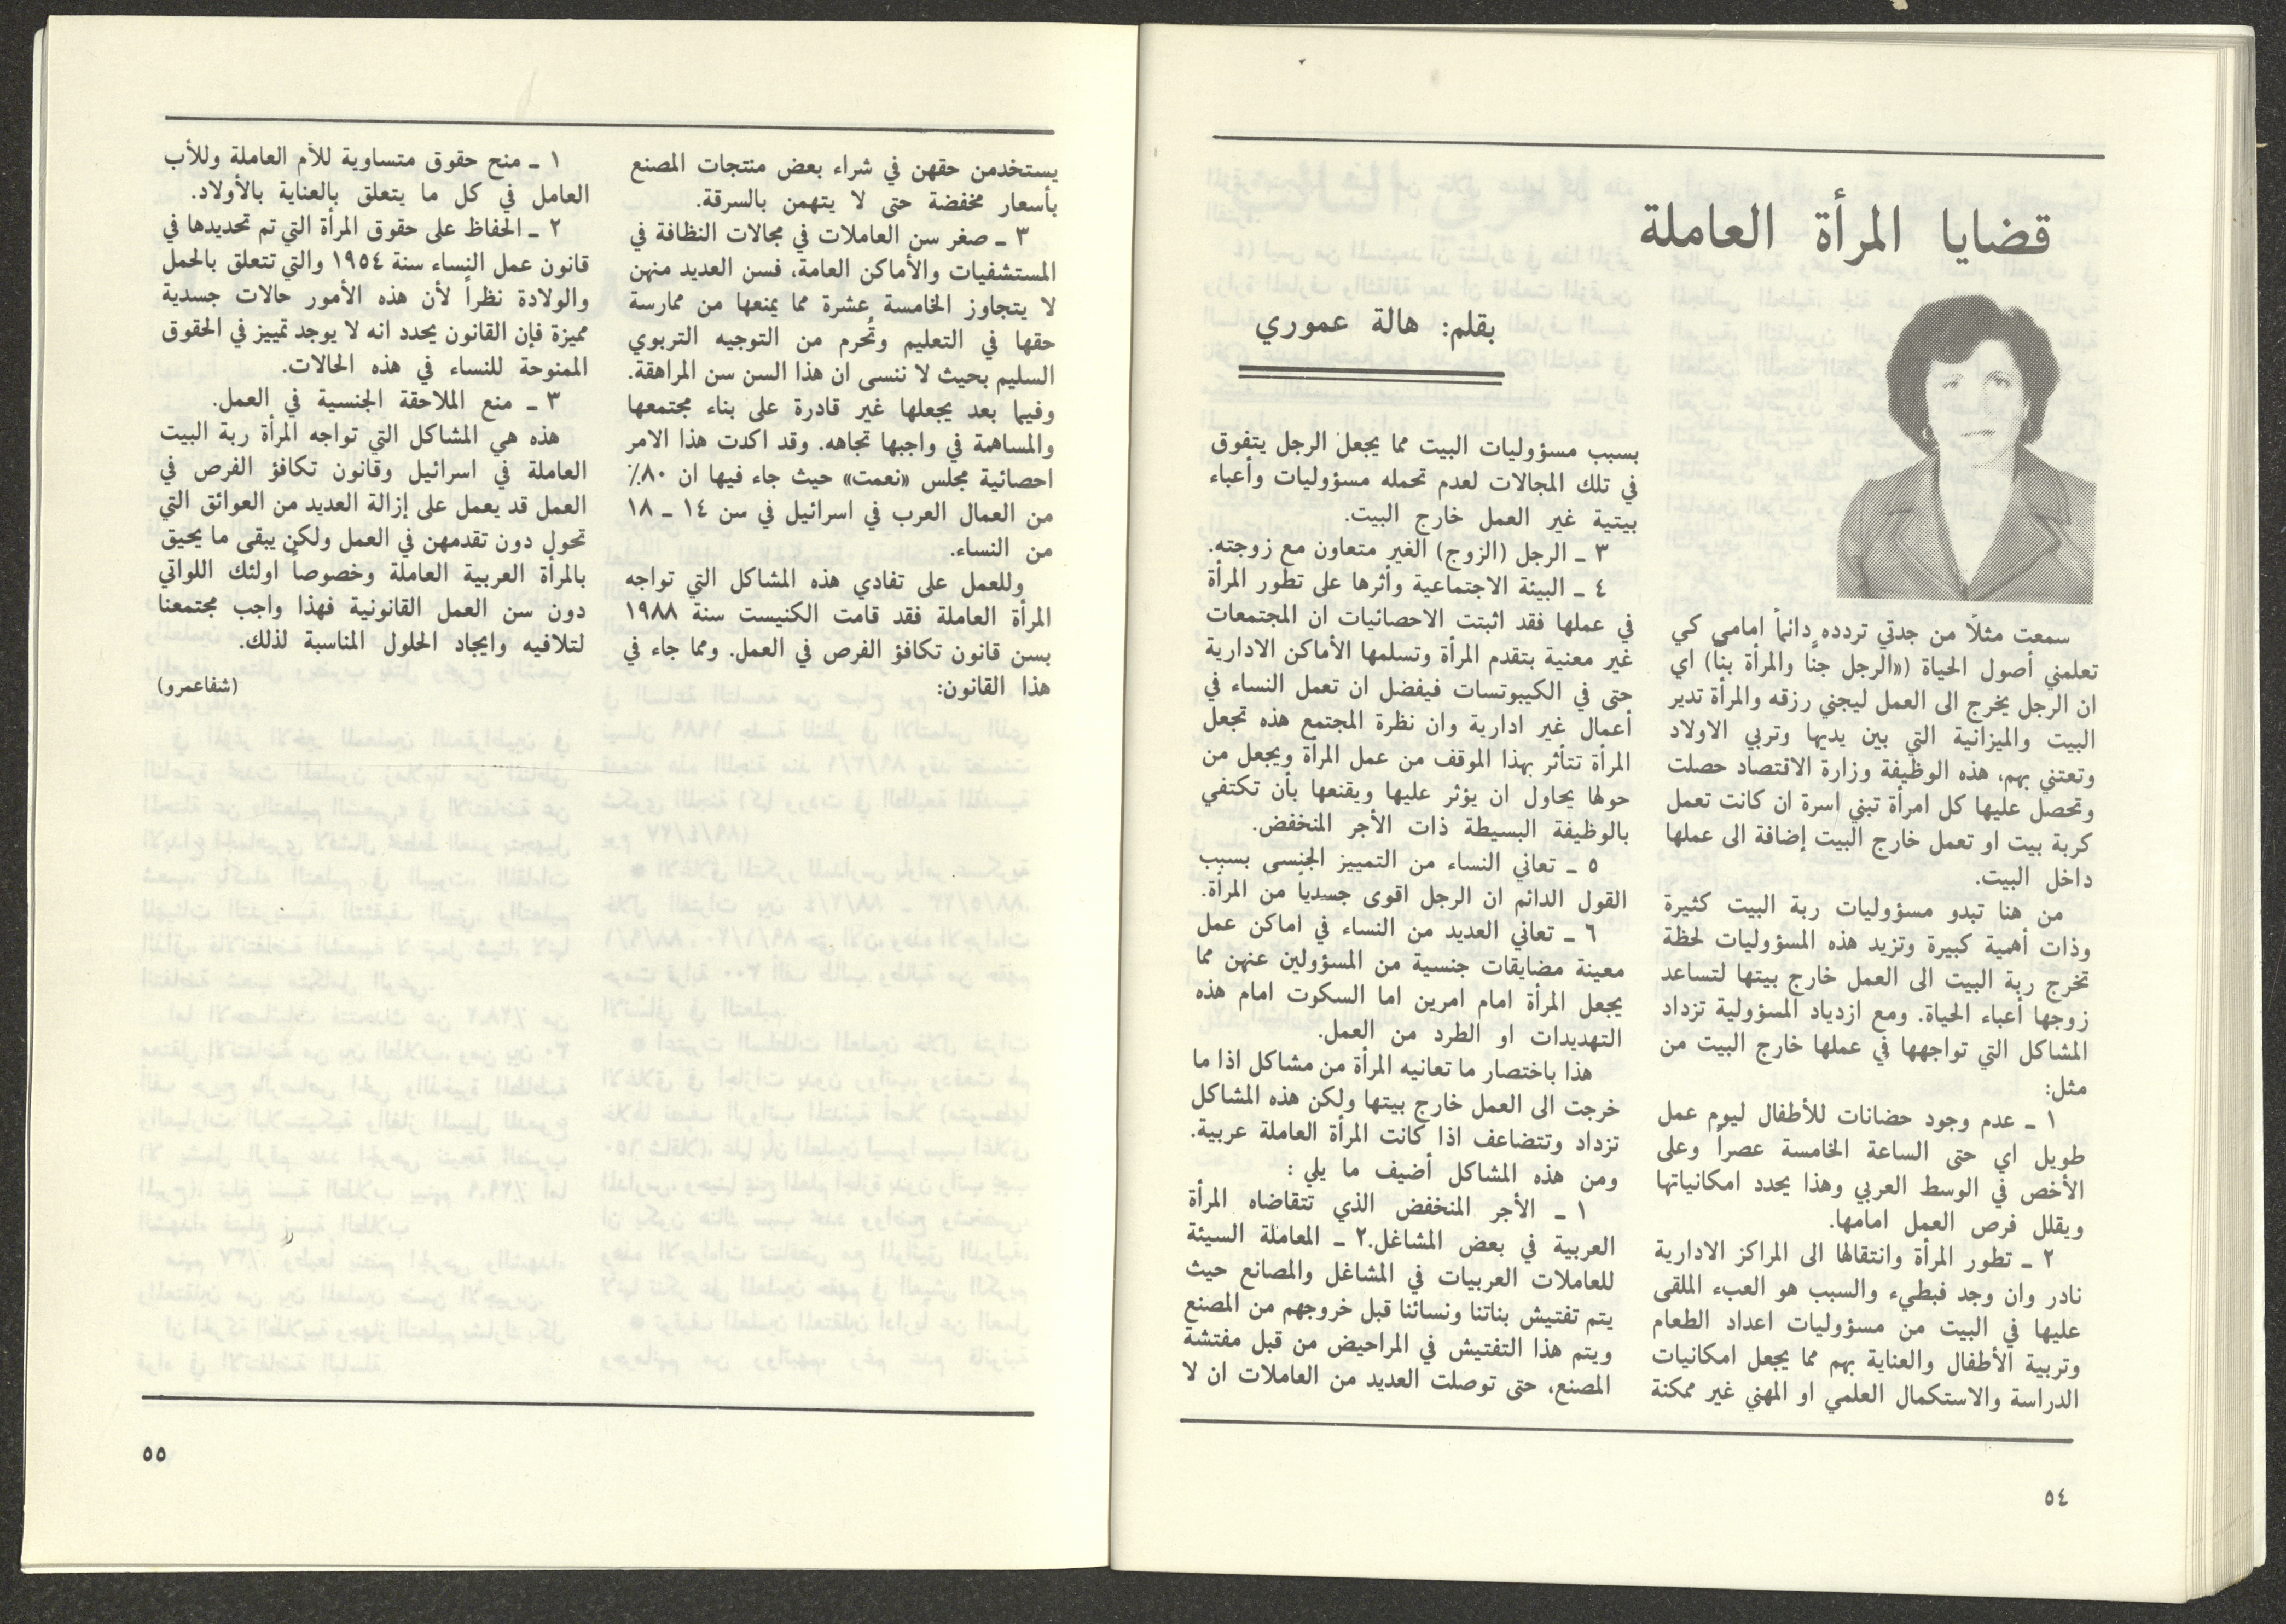 قضايا المرأة العاملة
بقلم: هالة عموري
سمعت مثلاً من جدتي تردده دائماً امامي كي
تعلمني أصول الحياة («الرجل جنّا والمرأة بنّا) اي
ان الرجل يخرج الى العمل ليجني رزقه والمرأة تدير
البيت والميزانية التي بين يديها وتربي الاولاد
وتعتني بهم، هذه الوظيفة وزارة الاقتصاد حصلت
وتحصل عليها كل امرأة تبني اسرة ان كانت تعمل
كربة بيت او تعمل خارج البيت إضافة الى عملها
داخل البيت.
من هنا تبدو مسؤوليات ربة البيت كثيرة
وذات أهمية كبيرة وتزيد هذه المسؤوليات لحظة
تخرج ربة البيت الى العمل خارج بيتها لتساعد
زوجها أعباء الحياة. ومع ازدياد المسؤولية تزداد
المشاكل التي تواجهها في عملها خارج البيت من
مثل:
١ ـ عدم وجود حضانات للأطفال ليوم عمل
طويل اي حتى الساعة الخامسة عصراً وعلى
الأخص في الوسط العربي وهذا يحدد امكانياتها
ويقلل فرص العمل امامها.
٢ ـ تطور المرأة وانتقالها الى المراكز الادارية
نادر وان وجد فبطيء والسبب هو العبء الملقى
عليها في البيت من مسؤوليات اعداد الطعام
وتربية الأطفال والعناية بهم مما يجعل امكانيات
الدراسة والاستكمال العلمي او المهني غير ممكنة
بسبب مسؤوليات البيت مما يجعل الرجل يتفوق
في تلك المجالات لعدم تحمله مسؤوليات وأعباء
بيتية غير العمل خارج البيت.
٣ ـ الرجل (الزوج) الغير متعاون مع زوجته.
٤ ـ البيئة الاجتماعية وأثرها على تطور المرأة
في عملها فقد اثبتت الاحصائيات ان المجتمعات
غير معنية بتقدم المرأة وتسلمها الأماكن الادارية
حتى في الكيبوتسات فيفضل ان تعمل النساء في
أعمال غير ادارية وان نظرة المجتمع هذه تجعل
المرأة تتأثر بهذا الموقف من عمل المرأة ويجعل من
حولها يحاول ان يؤثر عليها ويقنعها بأن تكتفي
بالوظيفة البسيطة ذات الأجر المنخفض.
٥ ـ تعاني النساء من التمييز الجنسى بسبب
القول الدائم ان الرجل اقوى جسدياً من المرأة.
٦ ـ تعاني العديد من النساء في اماكن عمل
معينة مضايقات جنسية من المسؤولين عنهن مما
يجعل المرأة امام امرين اما السكوت امام هذه
التهديدات او الطرد من العمل.
هذا باختصار ما تعانيه المرأة من مشاكل اذا ما
خرجت الى العمل خارج بيتها ولكن هذه المشاكل
تزداد وتتضاعف اذا كانت المرأة العاملة عربية.
ومن هذه المشاكل أضيف ما يلي :
١ ـ الأجر المنخفض الذي تتقاضاه المرأة
العربية في بعض المشاغل.٢ ـ المعاملة السيئة
للعاملات العربيات في المشاغل والمصانع حيث
يتم تفتيش بناتنا ونسائنا قبل خروجهم من المصنع
ويتم هذا التفتيش في المراحيض من قبل مفتشة
المصنع، حتى توصلت العديد من العاملات ان لا
٥٤
يستخدمن حقهن في شراء بعض منتجات المصنع
بأسعار مخفضة حتى لا يتهمن بالسرقة.
٣ ـ صغر سن العاملات في مجالات النظافة في
المستشفيات والأماكن العامة، فسن العديد منهن
لا يتجاوز الخامسة عشرة مما يمنعها من ممارسة
حقها في التعليم وتُحرم من التوجيه التربوي
السليم بحيث لا ننسى ان هذا السن سن المراهقة.
وفيما بعد يجعلها غير قادرة على بناء مجتمعها
والمساهمة في واجبها تجاهه. وقد اكدت هذا الامر
احصائية مجلس «نعمت» حيث جاء فيها ان ٨٠٪
من العمال العرب في اسرائيل في سن ١٤ ـ ١٨
من النساء.
وللعمل على تفادي هذه المشاكل التي تواجه
المرأة العاملة فقد قامت الكنيست سنة ١٩٨٨
بسن قانون تكافؤ الفرص في العمل. ومما جاء في
هذا القانون:
١ ـ منح حقوق متساوية للأم العاملة وللأب
العامل في كل ما يتعلق بالعناية بالأولاد.
٢ ـ الحفاظ على حقوق المرأة التي تم تحديدها في
قانون عمل النساء سنة ١٩٥٤ والتي تتعلق بالحمل
والولادة نظراً لأن هذه الأمور حالات جسدية
مميزة فإن القانون يحدد انه لا يوجد تمييز في الحقوق
الممنوحة للنساء في هذه الحالات.
٣ ـ منع الملاحقة الجنسية في العمل.
هذه هي المشاكل التي تواجه المرأة ربة البيت
العاملة في اسرائيل وقانون تكافؤ الفرص في
العمل قد يعمل على إزالة العديد من العوائق التي
تحول دون تقدمهن في العمل ولكن يبقى ما يحيق
بالمرأة العربية العاملة وخصوصاً اولئك اللواتي
دون سن العمل القانونية فهذا واجب مجتمعنا
لتلافيه وايجاد الحلول المناسبة لذلك.
(شفاعمرو)
٥٥